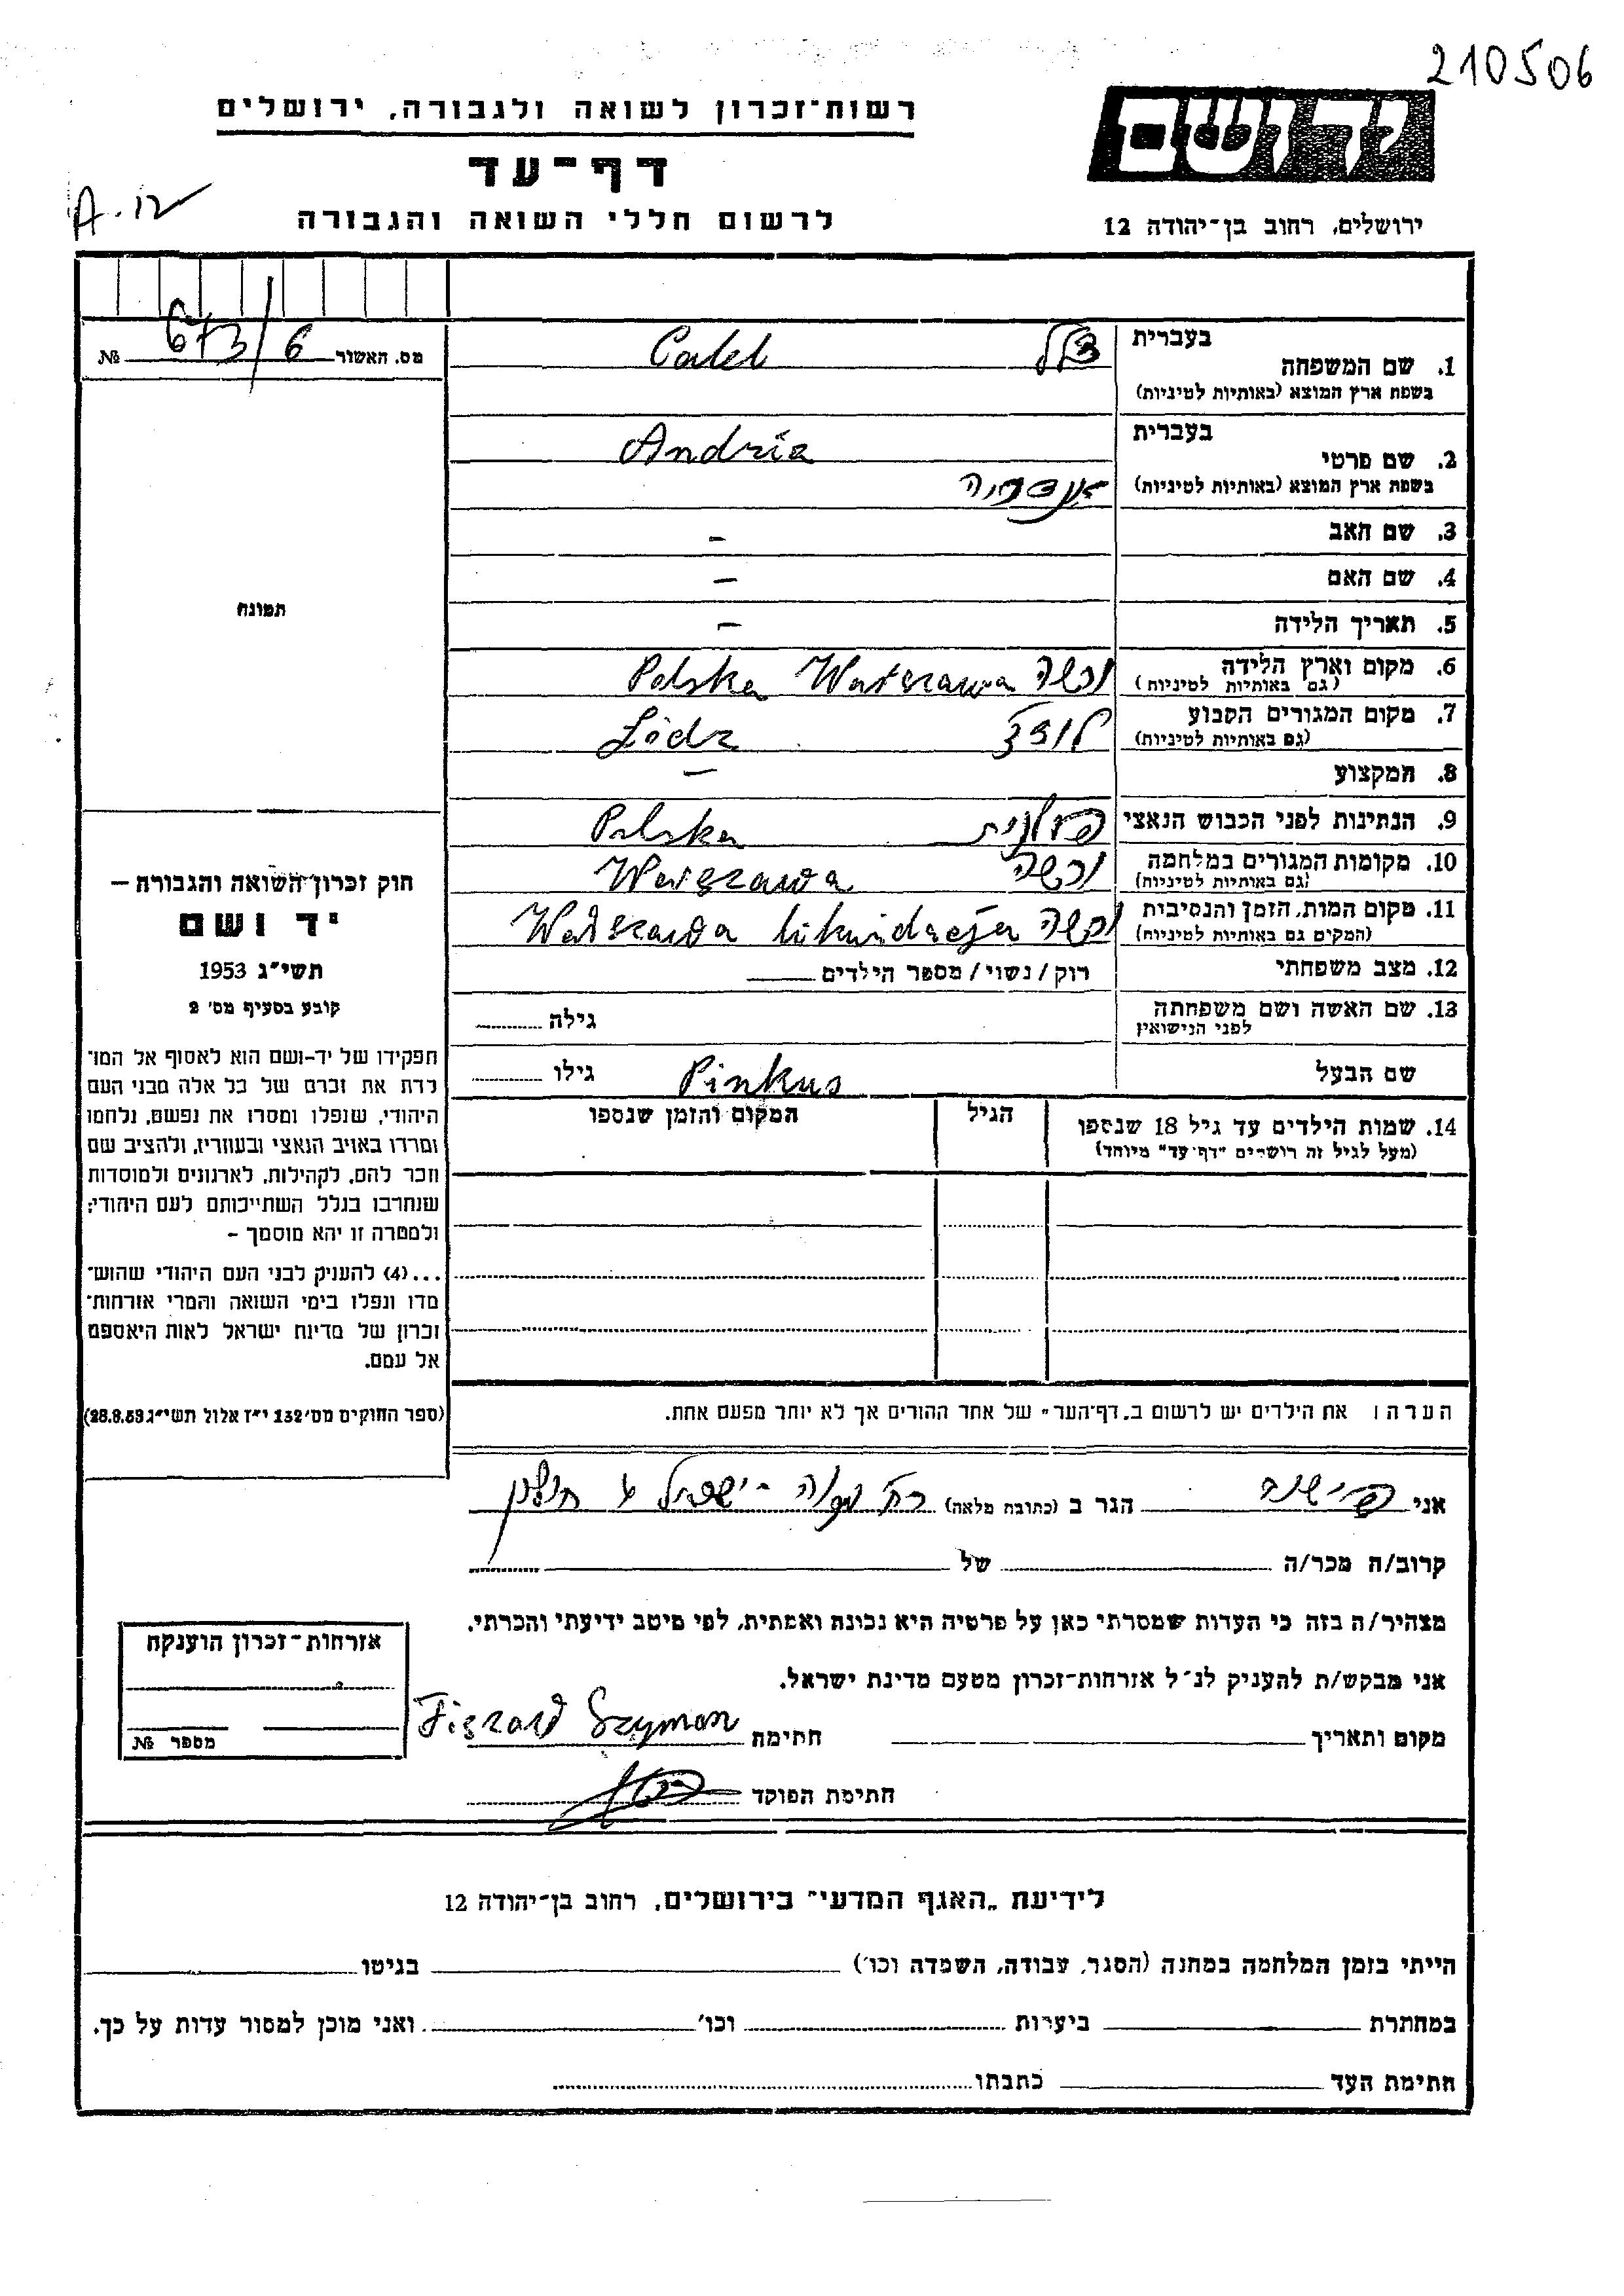 210506
רשות־זכרון לשואה ולגבורה, ירושלים
יד ושם
דף־עד
A.12
לרשום חללי השואה והגבורה
ירושלים, רחוב בן־יהודה 12
מס. האשור 673/6 №
בעברית
1. שם המשפחה Calel
בשפת ארץ המוצא (באותיות לטיניות)
בעברית
2. שם פרטי Andzia
בשפת ארץ המוצא (באותיות לטיניות) אנדזיה
3. שם האב –
4. שם האם –
תמונה
5. תאריך הלידה –
6. מקום וארץ הלידה ורשה Warszawa Polska
(גם באותיות לטיניות)
7. מקום המגורים הקבוע לודז' Lódz
(גם באותיות לטיניות)
8. המקצוע –
9. הנתינות לפני הכבוש הנאצי פולנית Polska
10. מקומות המגורים במלחמה ורשה Warszawa
(גם באותיות לטיניות)
11. מקום המות, הזמן והנסיבות ורשה Warszawa likwidacja
(המקום גם באותיות לטיניות)
12. מצב משפחתי רוק/נשוי/מספר הילדים
13. שם האשה ושם משפחתה גילה
לפני הנישואין
שם הבעל Pinkus גילו
14. שמות הילדים עד גיל 18 שנספו הגיל המקום והזמן שנספו
(מעל לגיל זה רושמים "דף־עד" מיוחד)
חוק זכרון השואה והגבורה –
יד ושם
תשי"ג 1953
קובע בסעיף מס' 2
תפקידו של יד-ושם הוא לאסוף אל המו־
לדת את זכרם של כל אלה מבני העם
היהודי, שנפלו ומסרו את נפשם, נלחמו
ומרדו באויב הנאצי ובעוזריו, ולהציב שם
וזכר להם, לקהילות, לארגונים ולמוסדות
שנחרבו בגלל השתייכותם לעם היהודי;
ולמטרה זו יהא מוסמך –
...(4) להעניק לבני העם היהודי שהוש־
מדו ונפלו בימי השואה והמרי אזרחות־
זכרון של מדינת ישראל לאות היאספם
אל עמם.
(ספר החוקים מס' 132 י"ז אלול תשי"ג 28.8.53)
הערה: את הילדים יש לרשום ב„דף־העד" של אחד ההורים אך לא יותר מפעם אחת.
אני פישרד הגר ב (כתובת מלאה)
קרוב/ה מכר/ה של
מצהיר/ה בזה כי העדות שמסרתי כאן על פרטיה היא נכונה ואמתית, לפי מיטב ידיעתי והכרתי.
אני מבקש/ת להעניק לנ"ל אזרחות־זכרון מטעם מדינת ישראל.
מקום ותאריך חתימה Fiszard Szymon
חתימת הפוקד
אזרחות־זכרון הוענקה
מספר №
לידיעת „האגף המדעי" בירושלים, רחוב בן־יהודה 12
הייתי בזמן המלחמה במחנה (הסגר, עבודה, השמדה וכו') בגיטו
במחתרת ביערות וכו' ואני מוכן למסור עדות על כך.
חתימת העד כתבתו